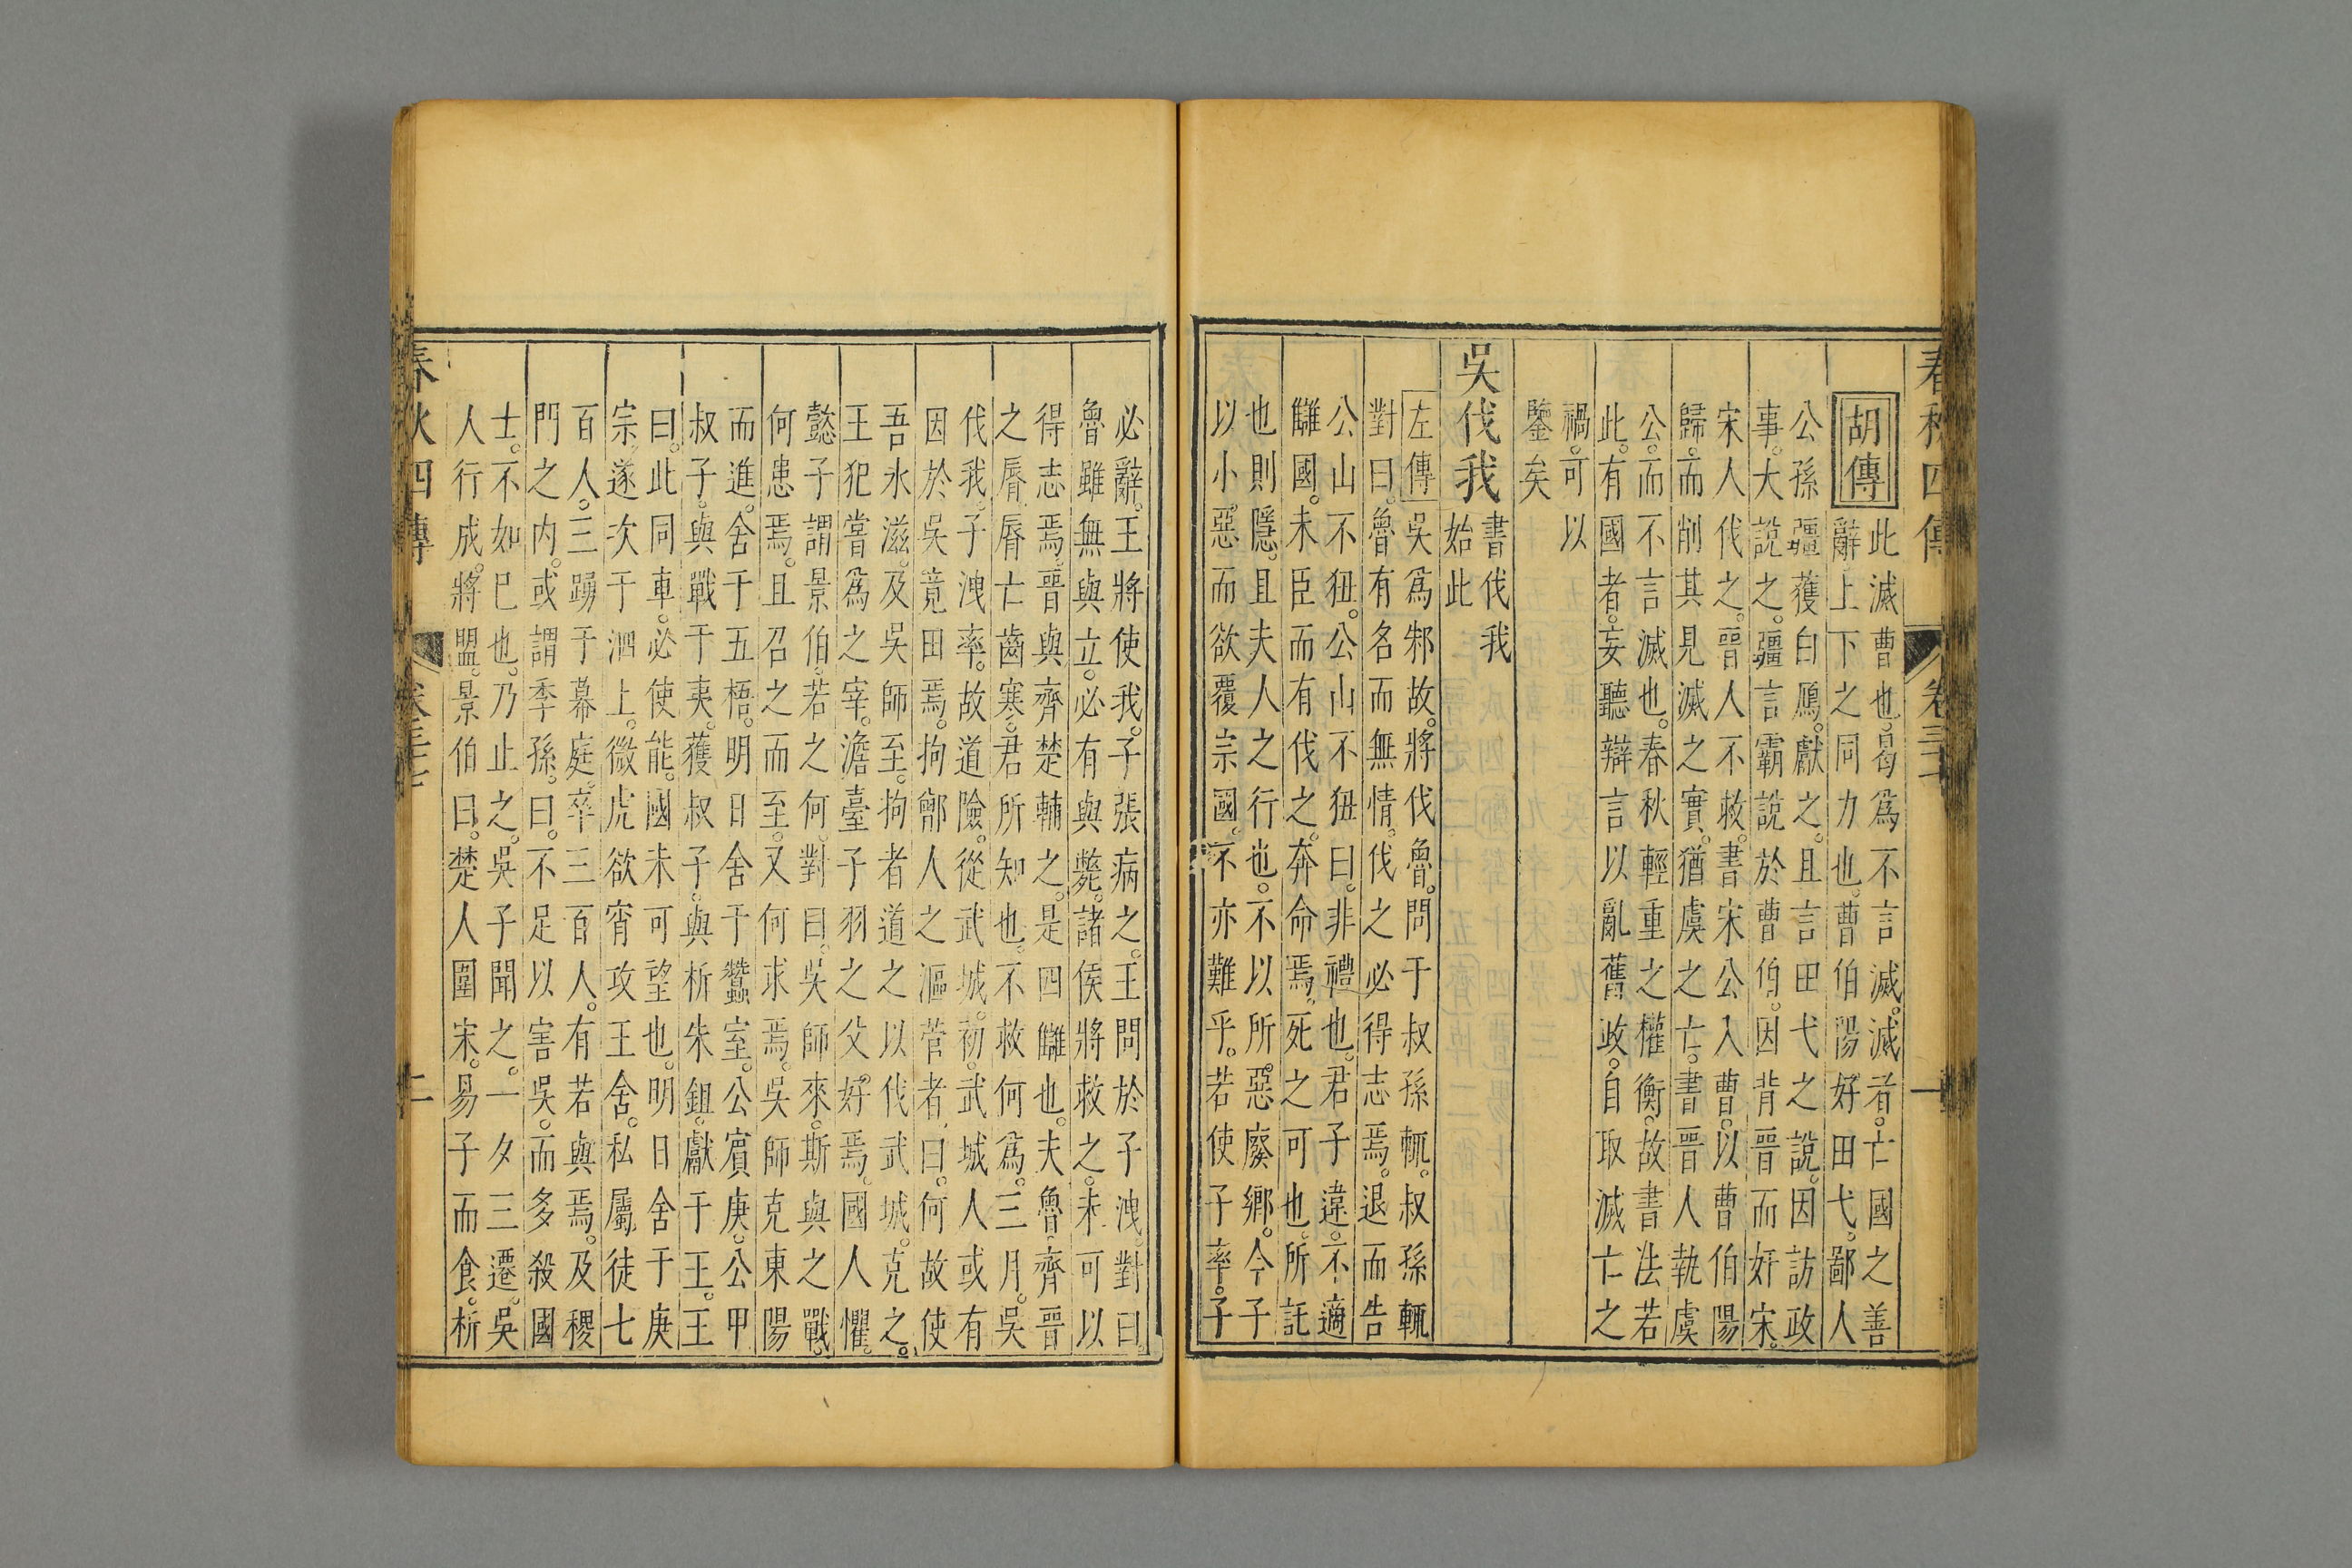 春秋四傳
卷三
一
胡傳
此滅曹也。曷爲不言滅。滅者。亡國之善
辭上下之同力也。曹伯陽好田弋。鄙人
公孫彊獲白鴈。獻之。且言田弋之說。因訪政
事。大說之。彊言霸說於曹伯。因背晉而奸宋。
宋人伐之。晉人不救。書宋公入曹。以曹伯陽
歸。而削其見滅之實。猶虞之亡。書晉人執虞
公。而不言滅也。春秋輕重之權衡。故書法若
此。有國者。妄聽辯言以亂舊政。自取滅亡之
禍。可以
鑒矣
吳伐我
書伐我
始此
左傳吳爲邾故。將伐魯。問于叔孫輒。叔孫輒
對曰。魯有名而無情。伐之必得志焉。退而告
公山不狃。公山不狃曰。非禮也。君子違。不適
讎國。未臣而有伐之。奔命焉。死之可也。所託
也則隱。且夫人之行也。不以所惡廢鄉。今子
以小惡而欲覆宗國。不亦難乎。若使子率。子
必辭。王將使我。子張病之。王問於子洩。對曰。
魯雖無與立。必有與斃。諸侯將救之。未可以
得志焉。晉與齊楚輔之。是四讎也。夫魯。齊晉
之脣。脣亡齒寒。君所知也。不救何爲。三月。吳
伐我。子洩率。故道險。從武城。初。武城人或有
因於吳竟田焉。拘鄫人之漚菅者。曰。何故使
吾水滋。及吳師至。拘者道之以伐武城。克之。
王犯嘗爲之宰。澹臺子羽之父好焉。國人懼。
懿子謂景伯。若之何。對曰。吳師來。斯與之戰。
何患焉。且召之而至。又何求焉。吳師克東陽
而進。舍于五梧。明日舍于蠶室。公賓庚。公甲
叔子。與戰于夷。獲叔子。與析朱鉏。獻于王。王
曰。此同車。必使能。國未可望也。明日舍于庚
宗。遂次于泗上。微虎欲宵攻王舍。私屬徒七
百人。三踊于幕庭。卒三百人。有若與焉。及稷
門之內。或謂季孫。曰。不足以害吳。而多殺國
士。不如已也。乃止之。吳子聞之。一夕三遷。吳
人行成。將盟。景伯曰。楚人圍宋。易子而食。析
春秋四傳
卷三十
二